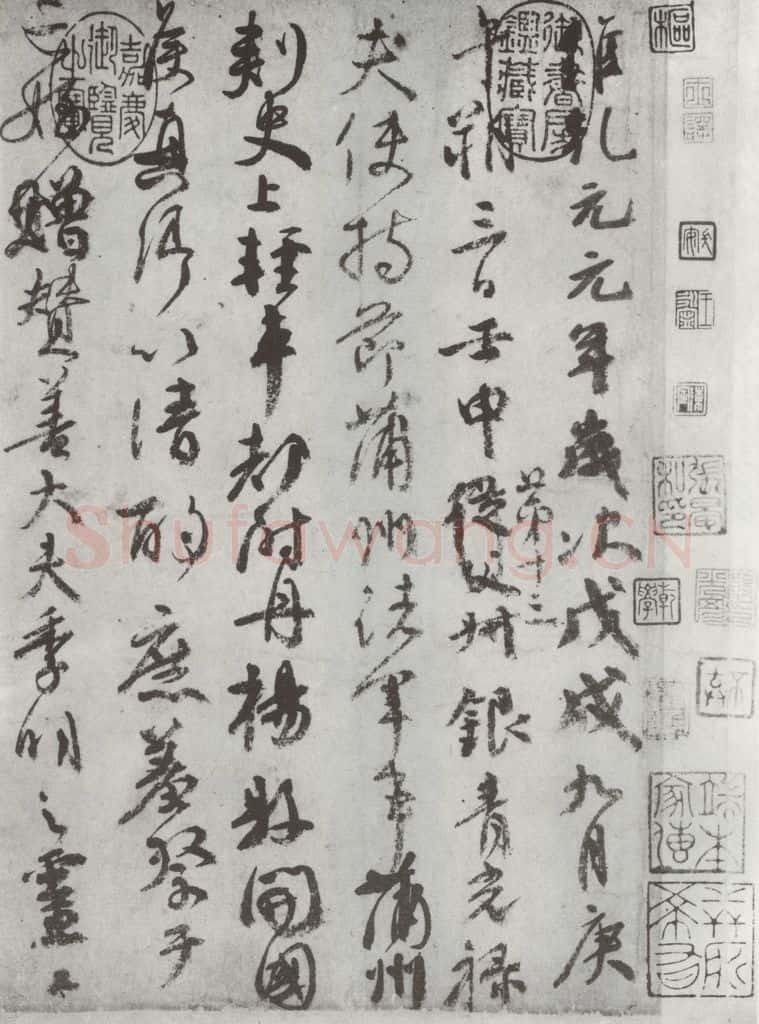 維乾元元年歲次戊戌九月庚
午朔三日壬申第十三從父叔銀青光祿
夫使持節蒲州諸軍事蒲州
刺史上輕車都尉丹楊縣開國
侯真卿以清酌庶羞祭于
亡姪贈贊善大夫季明之靈曰
御書房鑑藏寶
嘉慶御覽之寶
樞
張晏私印
Shufawang.CN